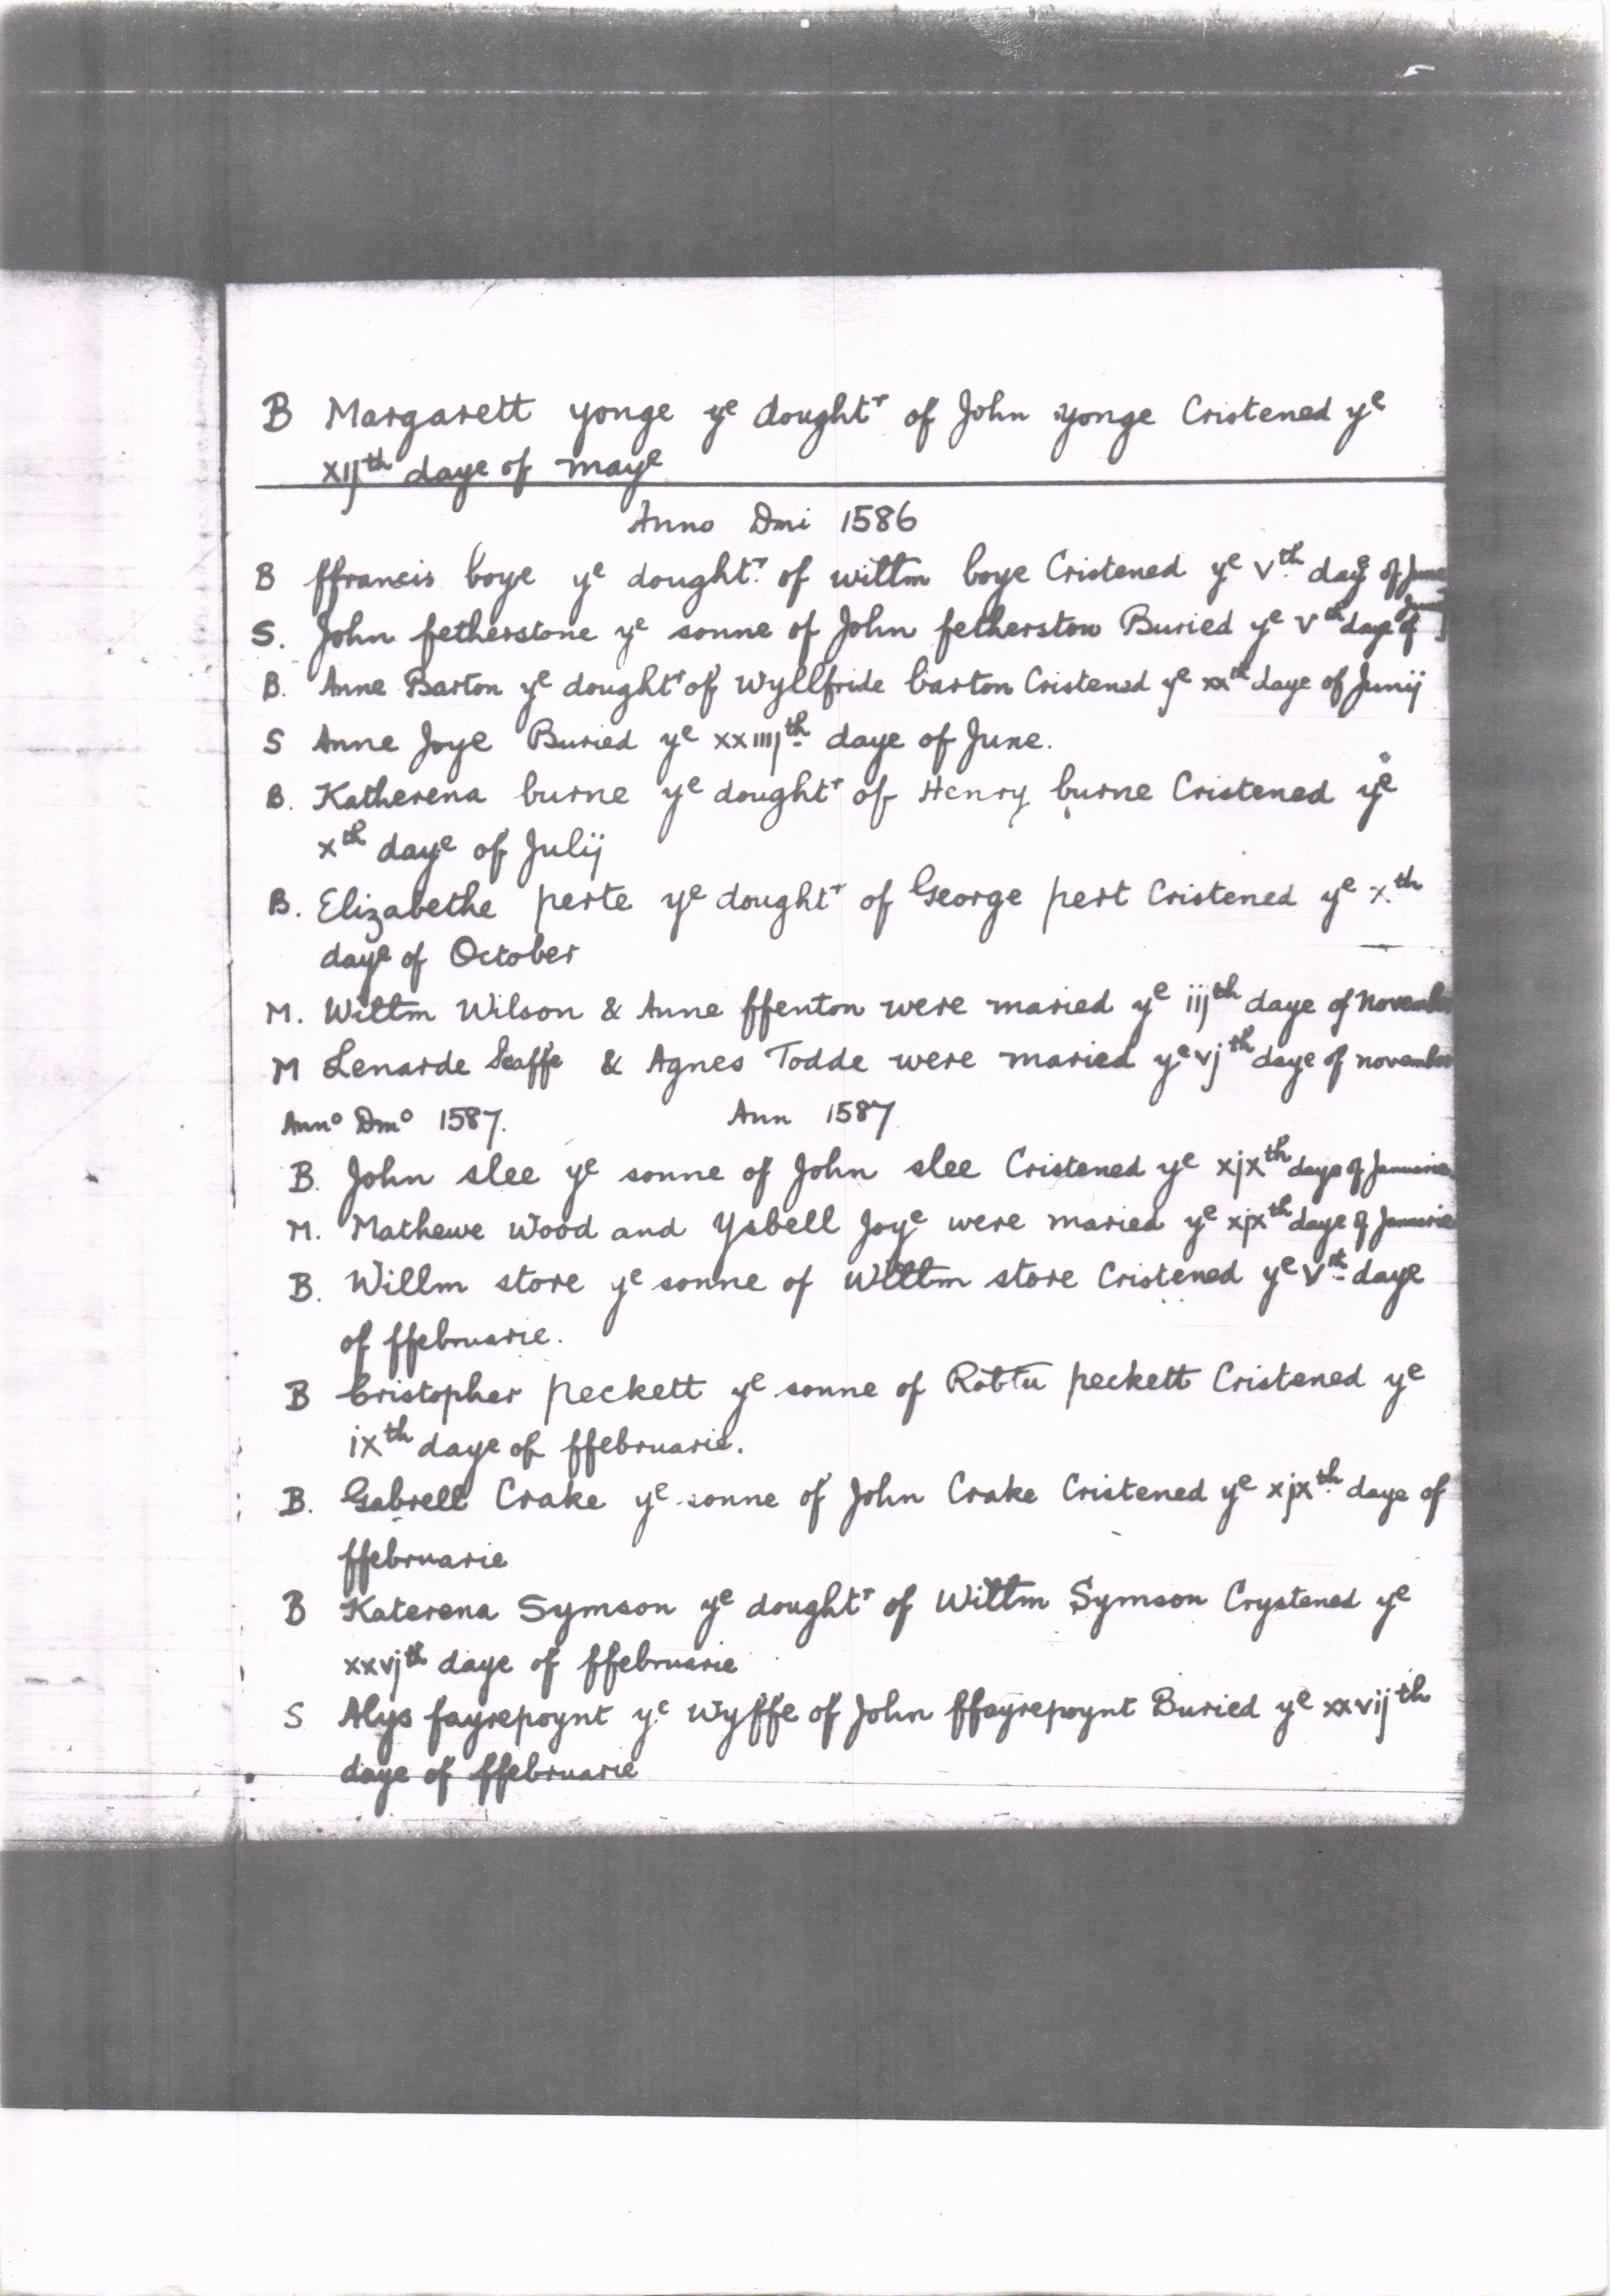 B Margarett yonge ye doughtr of John yonge Cristened ye
xijth daye of maye
Anno Dmi 1586
B ffrancis boye ye doughtr. of willm boye Cristened ye Vth daye of June
S. John fetherstone ye sonne of John fetherston Buried ye Vth daye of June
B. Anne Barton ye doughtr of Wyllfride barton Cristened ye xxth daye of Junij
S Anne Joye Buried ye xxiiijth daye of June.
B. Katherena burne ye doughtr of Henry burne Cristened ye
xth daye of Julij
B. Elizabethe perte ye doughtr of George pert Cristened ye xth
daye of October
M. Willm Wilson & Anne ffenton were maried ye iijth daye of November
M Lenarde Scaffe & Agnes Todde were maried ye vjth daye of november
Anno Dmo 1587. Ann 1587
B. John slee ye sonne of John slee Cristened ye xjxth daye of Januarie
M. Mathewe Wood and Ysbell Joye were maried ye xjxth daye of Januarie
B. Willm store ye sonne of Willm store Cristened ye Vth daye
of ffebruarie.
B Cristopher peckett ye sonne of Robtu peckett Cristened ye
ixth daye of ffebruarie.
B. Gabrell Crake ye sonne of John Crake Cristened ye xjxth daye of
ffebruarie
B Katerena Symson ye doughtr of Willm Symson Crystened ye
xxvjth daye of ffebruarie
S Alys fayrepoynt ye Wyffe of John ffayrepoynt Buried ye xxvijth
daye of ffebruarie